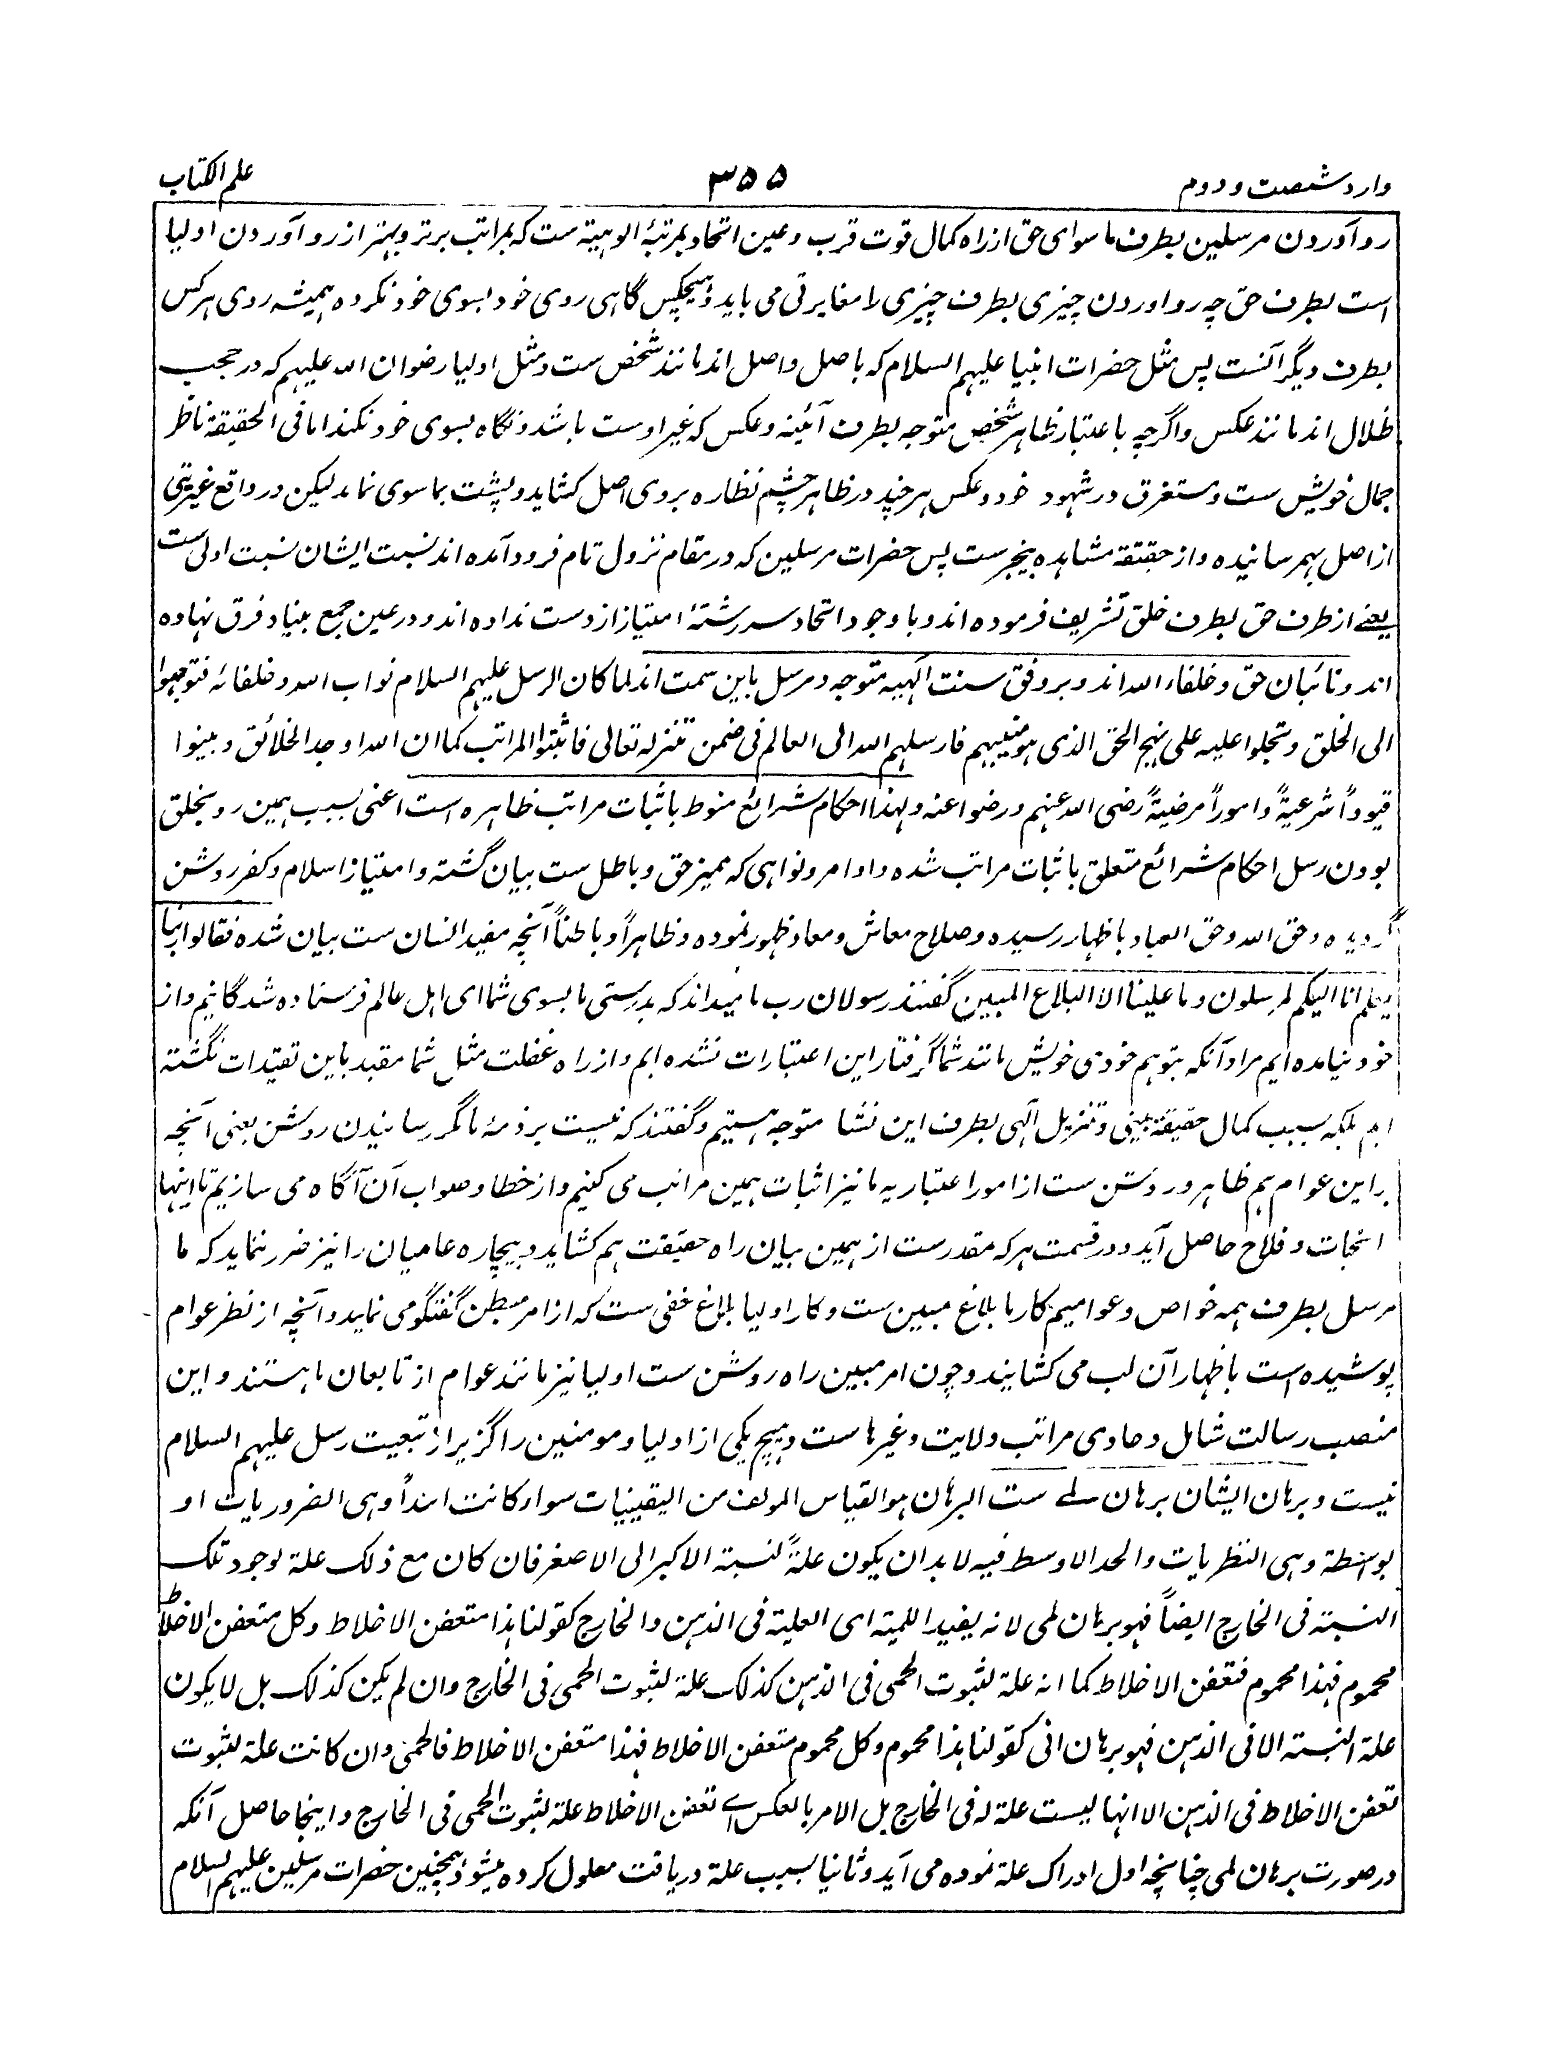 وارد شصت و دوم
۳۵۵
علم الکتاب
رو آوردن مرسلین بطرف ماسوای حق از راه کمال قوت قرب و عین اتحاد بمرتبۂ الوهیة ست که بمراتب برتر و بهتر از رو آوردن اولیا
است بطرف حق چه رو اوردن چیزی بطرف چیزی را مغایرتی می باید و هیچکس گاهی روی خود بسوی خود نکرده همیشه روی هر کس
بطرف دیگر آنست پس مثل حضرات انبیا علیهم السلام که باصل واصل اند مانند شخص ست و مثل اولیا رضوان الله علیهم که در حجب
ظلال اند مانند عکس و اگرچه باعتبار ظاهر شخص متوجه بطرف آئینه و عکس که غیر اوست باشد و نگاه بسوی خود نکند اما فی الحقیقة ناظر
جمال خویش ست و مستغرق در شهود خود و عکس هر چند در ظاهر چشم نظاره بروی اصل کشاید و پشت بماسوی نماید لیکن در واقع غیریتی
از اصل بهم رسانیده و از حقیقة مشاهده بیخبر ست پس حضرات مرسلین که در مقام نزول تام فرود آمده اند نسبت ایشان نسبت اولی ست
یعنے از طرف حق بطرف خلق تشریف فرموده اند و با وجود اتحاد سر رشتۂ امتیاز از دست نداده اند و در عین جمع بنیاد فرق نهاده
اند و نائبان حق و خلفاء الله اند و بر وفق سنت الٰهیه متوجه و مرسل باین سمت اند لما کان الرسل علیهم السلام نواب الله و خلفائه فتوجهوا
الی الخلق و تجلوا علیه علی نهج الحق الذی هو منیبهم فارسلهم الله الی العالم فی ضمن تنزله تعالی فاثبتوا المراتب کما ان الله اوجد الخلائق و بینوا
قیوداً شرعیةً و اموراً مرضیةً رضی الله عنهم و رضوا عنه و لهذا احکام شرائع منوط باثبات مراتب ظاهره است اعنی بسبب همین رو بخلق
بودن رسل احکام شرائع متعلق باثبات مراتب شده و اوامر و نواهی که ممیز حق و باطل ست بیان گشته و امتیاز اسلام و کفر روشن
گردیده و حق الله و حق العباد باظهار رسیده و صلاح معاش و معاد ظهور نموده و ظاهراً و باطناً آنچه مفید انسان ست بیان شده فقالوا ربنا
یعلم انا الیکم لمرسلون و ما علینا الا البلاغ المبین گفتند رسولان رب ما میداند که بدرستی ما بسوی شما ای اهل عالم فرستاده شدگانیم و از
خود نیامده ایم مراد آنکه بتوهم خودی خویش مانند شما گرفتار این اعتبارات نشده ایم و از راه غفلت مثل شما مقید باین تقیدات نگشته
ایم بلکه بسبب کمال حقیقة بینی و تنزیل الٰهی بطرف این نشا متوجه هستیم و گفتند که نیست بر ذمۂ ما مگر رسانیدن روشن یعنی آنچه
براین عوام هم ظاهر و روشن ست از امور اعتباریه ما نیز اثبات همین مراتب می کنیم و از خطا و صواب آن آگاه می سازیم تا اینها
را نجات و فلاح حاصل آید و در قسمت هر که مقدرست از همین بیان راه حقیقت هم کشاید و بیچاره عامیان را نیز ضرر ننماید که ما
مرسل بطرف همه خواص و عوامیم کار ما بلاغ مبین ست و کار اولیا بلاغ خفی ست که از امر مبطن گفتگو می نماید و آنچه از نظر عوام
پوشیده است باظهار آن لب می کشایند و چون امر مبین راه روشن ست اولیا نیز مانند عوام از تابعان ما هستند و این
منصب رسالت شامل و حاوی مراتب ولایت و غیرها ست و هیچ یکی از اولیا و مومنین را گزیر از تبعیت رسل علیهم السلام
نیست و برهان ایشان برهان لمے ست البرهان هو القیاس المولف من الیقینیات سواء کانت ابتداً وهی الضروریات او
بواسطة وهی النظریات والحد الاوسط فیه لابد ان یکون علةً لنسبة الاکبر الی الاصغر فان کان مع ذلک علة لوجود تلک
النسبة فی الخارج ایضاً فهو برهان لمی لانه یفید اللمیة ای العلیة فی الذهن والخارج کقولنا هذا متعفن الاخلاط و کل متعفن الاخلاط
محموم فهذا محموم فتعفن الاخلاط کما انه علة لثبوت الحمی فی الذهن کذلک علة لثبوت الحمی فی الخارج وان لم یکن کذلک بل لا یکون
علة النسبة الا فی الذهن فهو برهان انی کقولنا هذا محموم و کل محموم متعفن الاخلاط فهذا متعفن الاخلاط فالحمی وان کانت علة لثبوت
تعفن الاخلاط فی الذهن الا انها لیست علة له فی الخارج بل الامر بالعکس اے تعفن الاخلاط علة لثبوت الحمی فی الخارج و اینجا حاصل آنکه
در صورت برهان لمی چنانچه اول ادراک علة نموده می آید و ثانیا بسبب علة دریافت معلول کرده میشود همچنین حضرات مرسلین علیهم السلام